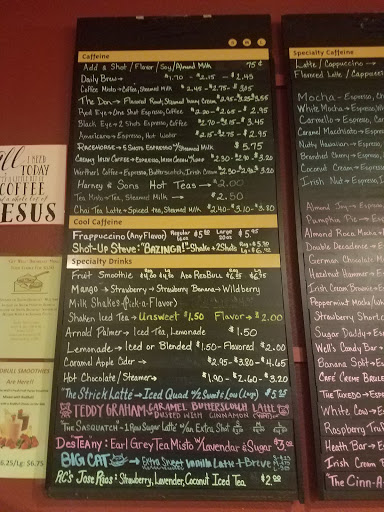 S M L
Caffeine
Add a Shot / Flavor / Soy / Almond Milk 75¢
Daily Brew → $1.70 - $2.15 - $2.45
Coffee Misto → Coffee, Steamed Milk $2.45 - $2.75 - $3.05
The Don → Flavored Roast, Steamed Irish Cream
Red Eye → One Shot Espresso, Coffee $2.20 - $2.65 - $2.95
Black Eye → 2 Shots Espresso, Coffee $2.70 - $3.15 - $3.45
Americano → Espresso, Hot Water $2.15 - $2.75 - $2.95
Racehorse → 5 Shots Espresso w/ Steamed Milk $5.75
Creamy Irish Coffee → Espresso, Irish Cream $2.30 - $2.90 - $3.20
Espresso, Butterscotch, Irish Cream
Harney & Sons Hot Teas → $2.00
Tea Misto → Tea, Steamed Milk → $2.50
Chai Tea Latte → Spiced tea, Steamed Milk $2.40 - $3.10 - $3.30
Cool Caffeine
Frappuccino (Any Flavor) Regular $5.00 Large $5.95
Shot-Up Steve: "BAZINGA!" - Shake + 2 Shots Reg → $5.30 Lg → $6.40
Specialty Drinks
Fruit Smoothie Add RedBull
Mango → Strawberry → Strawberry Banana → Wildberry
Milk Shakes (Pick-a-Flavor)
Shaken Iced Tea → Unsweet $1.50 Flavor → $2.00
Arnold Palmer → Iced Tea, Lemonade $1.50
Lemonade → Iced or Blended $1.50 - Flavored $2.00
Caramel Apple Cider → $2.95 - $3.80 - $4.65
Hot Chocolate / Steamer → $1.90 - $2.60 - $3.20
The Strick Latte → Iced Quad w/ 2 Sweet & Low (Large) $5.25
TEDDY GRAHAM: CARAMEL BUTTERSCOTCH LATTE
DUSTED WITH CINNAMON
The Sasquatch - 1 Raw Sugar Latte w/ an Extra Shot
DesTEAny: Earl Grey Tea Misto w/ Lavendar & Sugar $3.00
BIG CAT → Extra Sweet Vanilla Latte + Breve
RC's Jose Rias: Strawberry, Lavender, Coconut Iced Tea $2.00
Specialty Caffeine
Latte / Cappuccino →
Flavored Latte / Cappuccino
Mocha - Espresso, Cho
White Mocha → Espresso, Whi
Carmello → Espresso, Car
Caramel Macchiato → Espress
Nutty Hawaiian → Espresso,
Brandied Cherry → Espresso,
Coconut Cream → Espresso
Irish Nut → Espresso, I
Almond Joy → Espresso
Pumpkin Pie → Espresso
Almond Roca Mocha → E
Double Decadence → E
German Chocolate M
Hazelnut Hammer → E
Irish Cream Brownie → E
Peppermint Mocha /
Strawberry Shortc
Sugar Daddy → Es
Wells Candy Bar →
Banana Split → E
CAFÉ CRÈME BRULEE
The Tuxedo → Espr
White Cow → Esp
Raspberry Truf
Heath Bar → Es
Irish Cream B
The Cinn-A
All
I NEED
TODAY
COFFEE
JESUS
REDBULL SMOOTHIES
Are Here!!
$6.25/Lg: $6.75